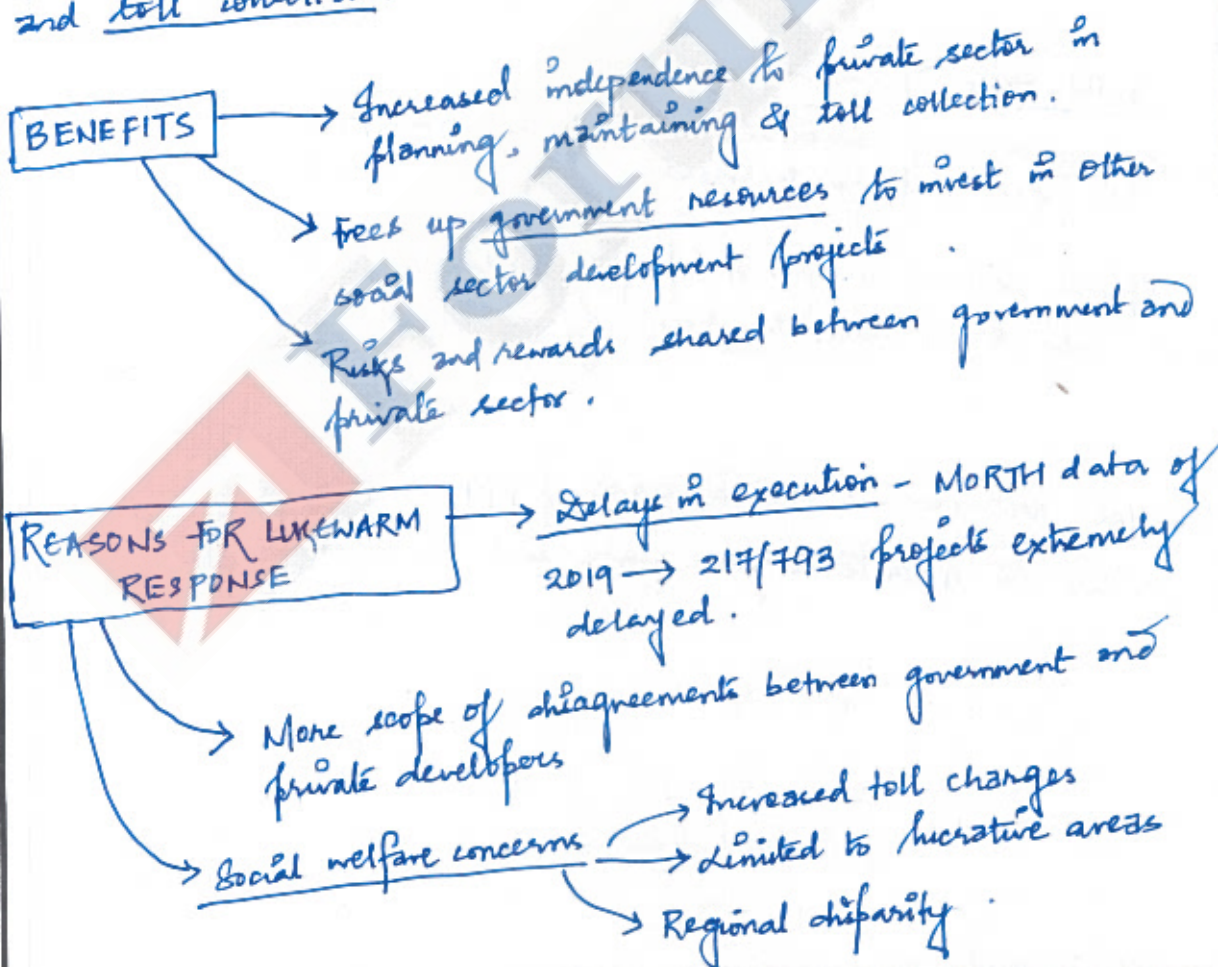 and toll
BENEFITS
Increased independence to private sector in
planning, maintaining & toll collection.
Frees up government resources to invest in other
social sector development projects.
Risks and rewards shared between government and
private sector.
REASONS FOR LUKEWARM
RESPONSE
Delays in execution - MORTH data of
2019 → 217/793 projects extremely
delayed.
More scope of disagreements between government and
private developers
Social welfare concerns
Increased toll charges
Limited to lucrative areas
Regional disparity.
Forum